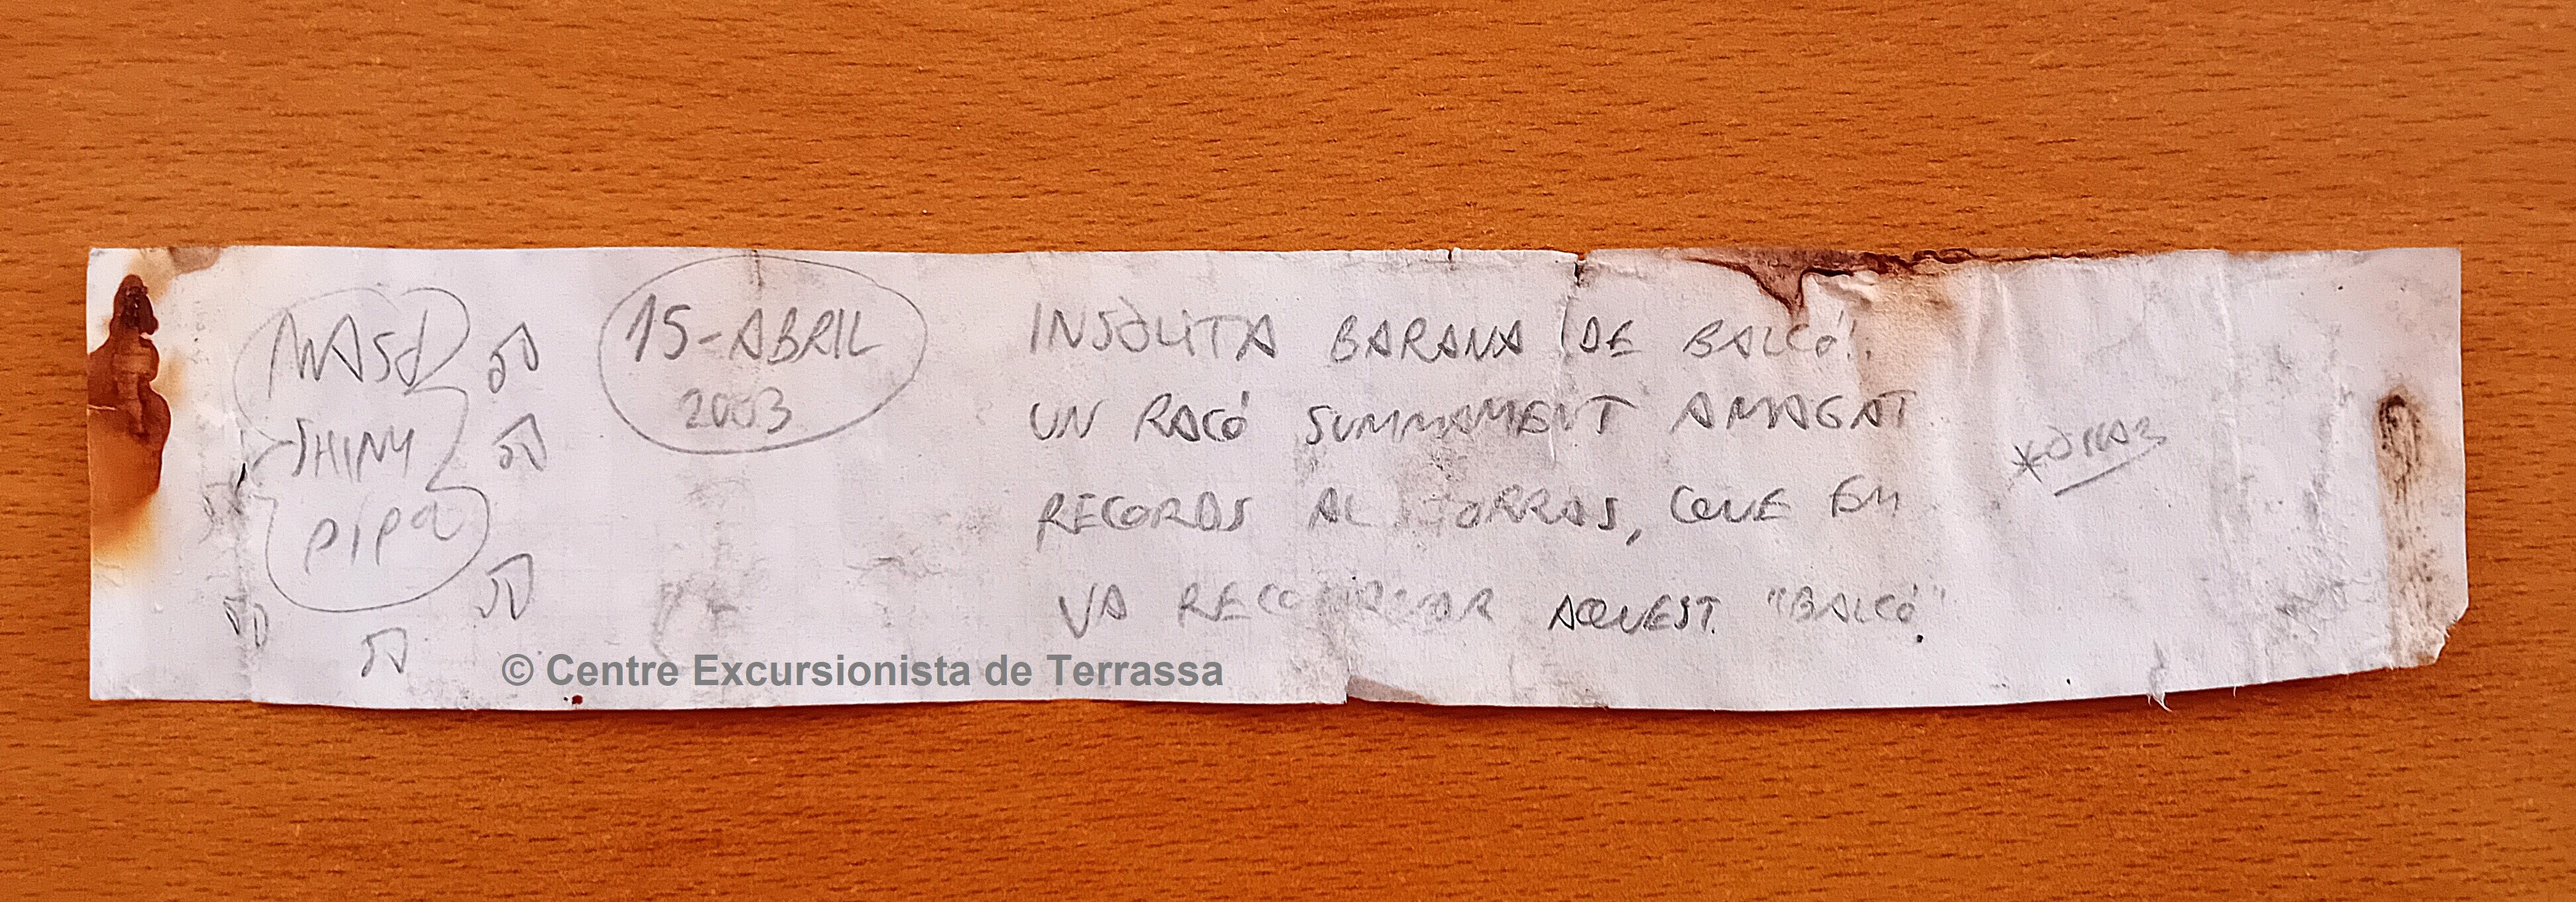 SHINY
pipa
15-ABRIL
2003
INSÒLITA BARANA DE BALCÓ!.
UN RACÓ SUMMAMENT AMAGAT
RECORDS AL TORRAS, QUE EM
VA RECOMANAR AQUEST "BALCÓ".
© Centre Excursionista de Terrassa